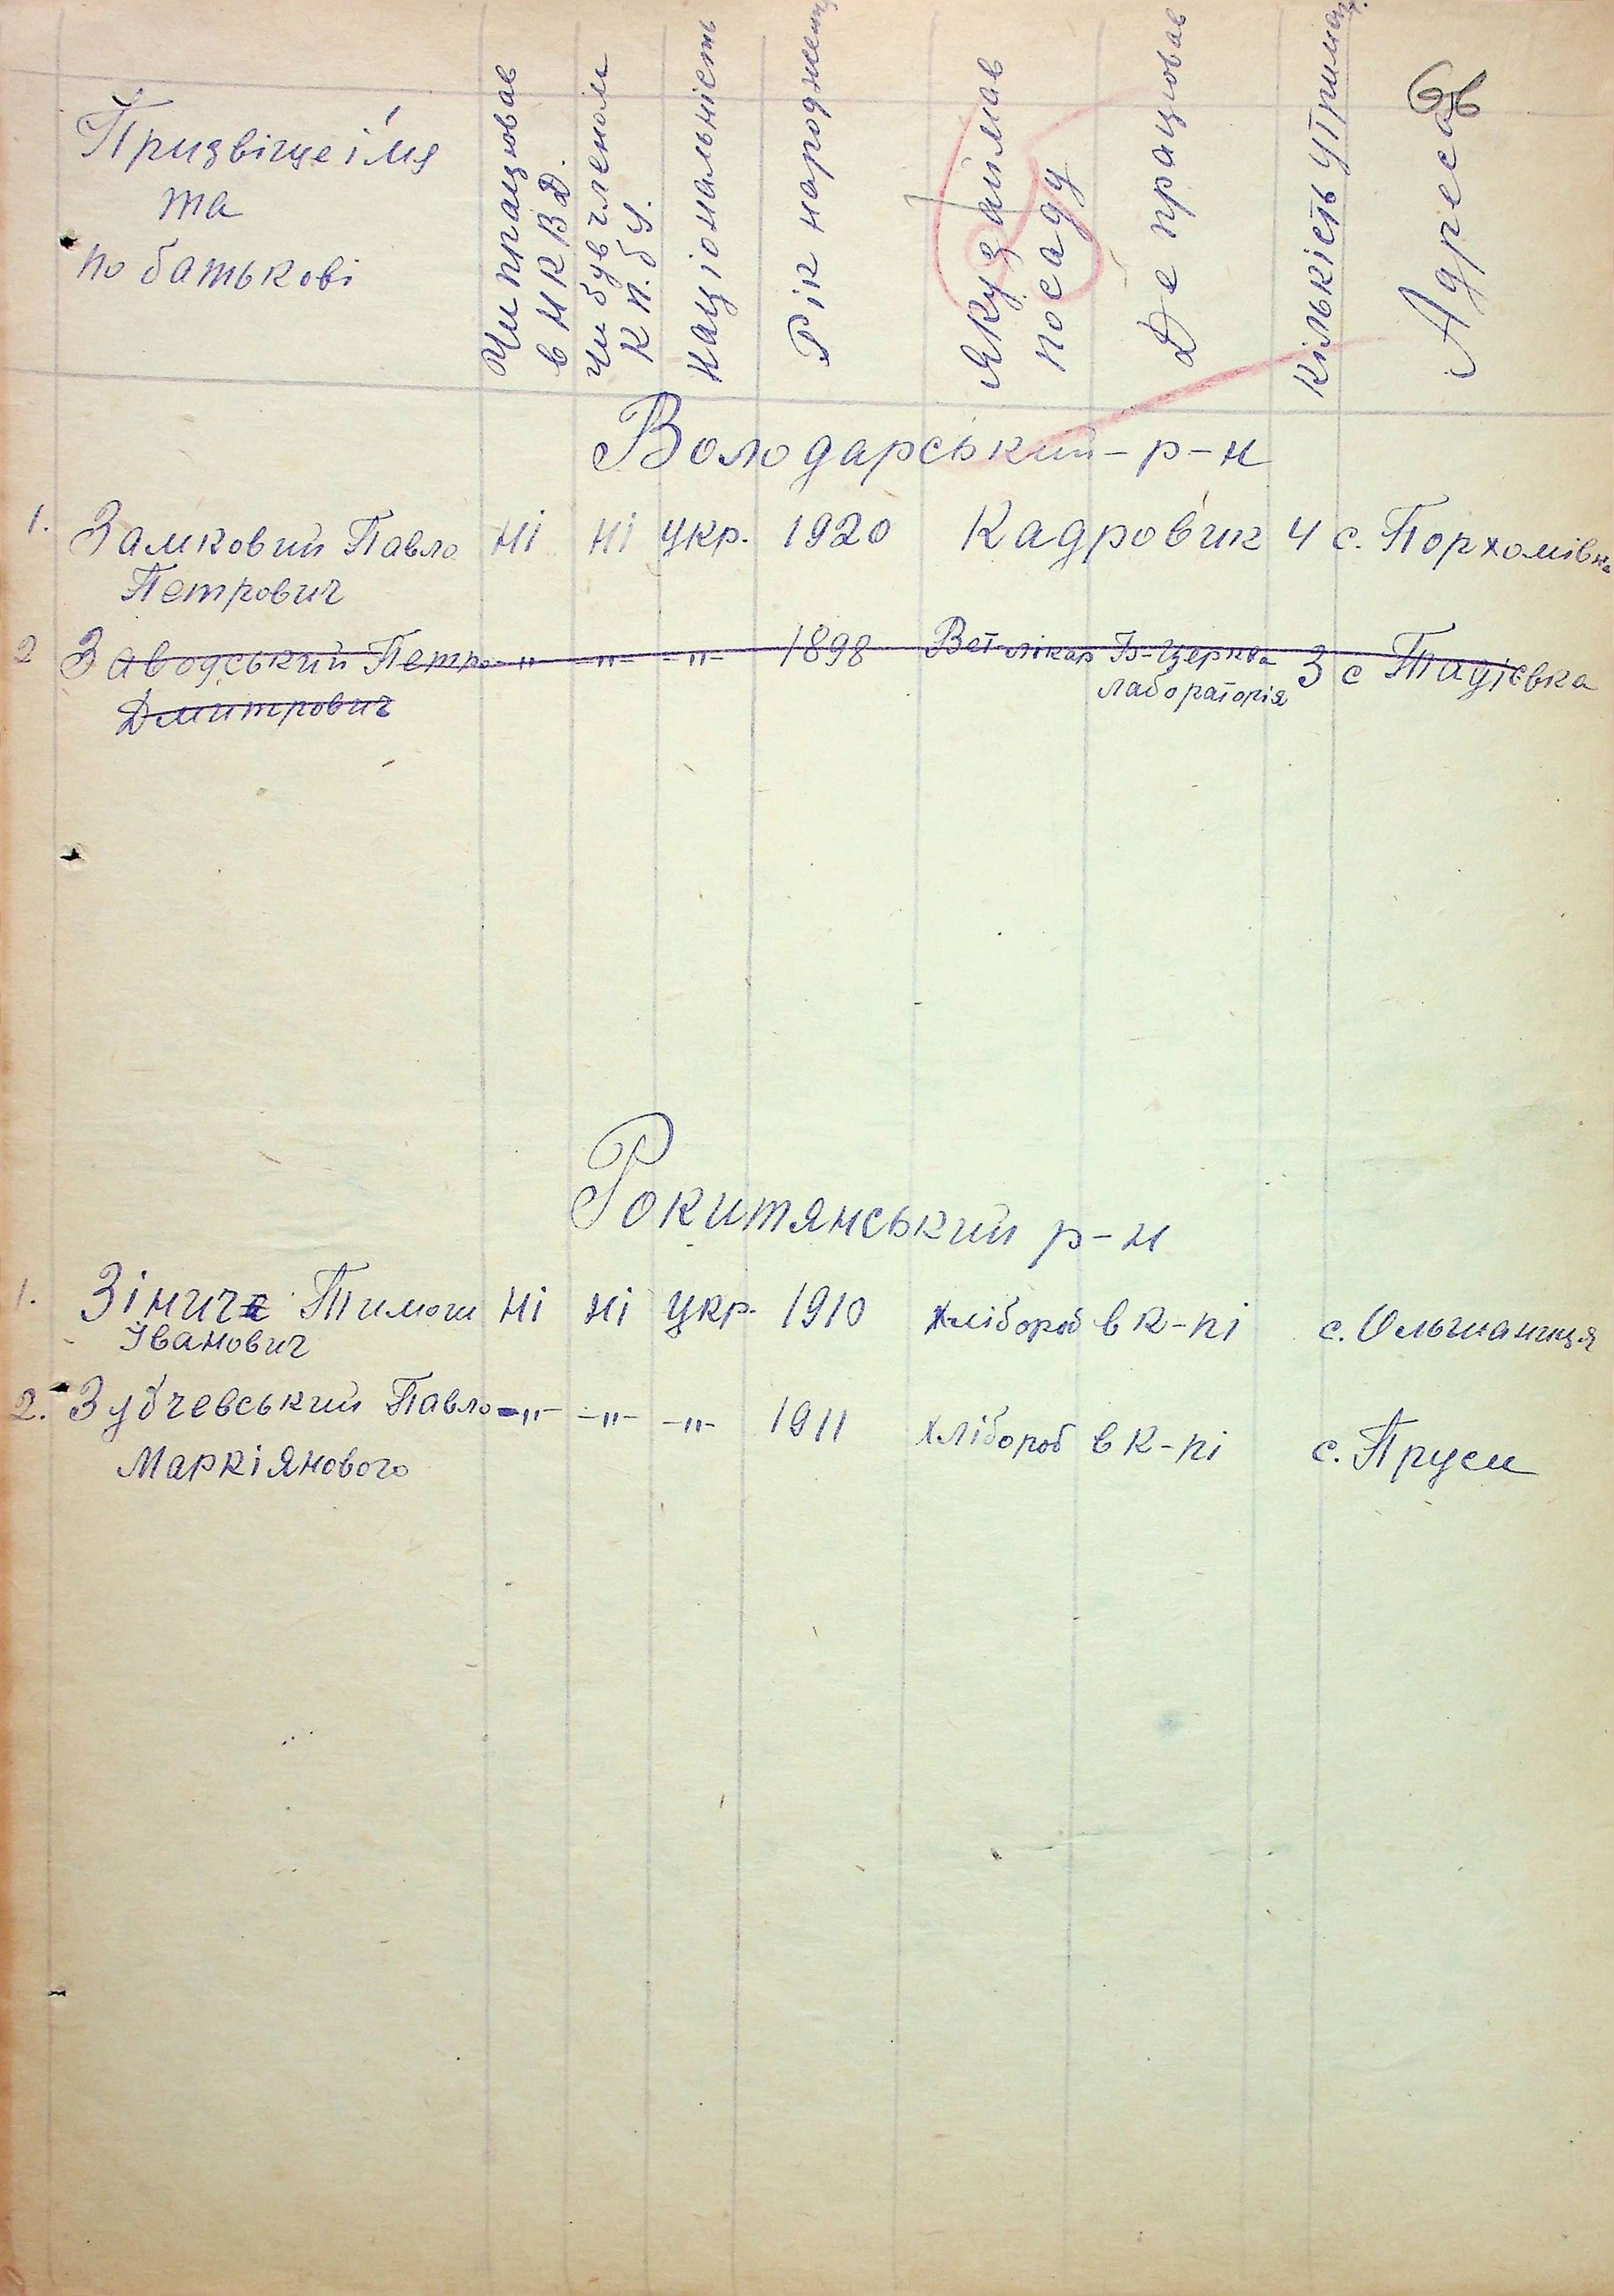 66
Призвіще і́мя
та
по батькові
Чи працював
в НКВД.
Чи був членом
К п. б У.
Національність
Рік народжен
Яку займав
посаду
Де працював
Кількість утриманц.
Адреса
Володарський - р-н
1. Замковий Павло ні ні укр. 1920 Кадровик 4 с. Порхомівка
Петрович
2 Заводський Петро -"- -"- -"- 1898 Вет-лікар Б-Церква 3 с Тадієвка
Дмитрович лабораторія
Рокитянський р-н
1. Зінич Тимош ні ні укр. 1910 хлібороб в к-пі с. Ольшаниця
Іванович
2. Зубчевський Павло -"- -"- -"- 1911 хлібороб в к-пі с. Пруси
Маркіянового